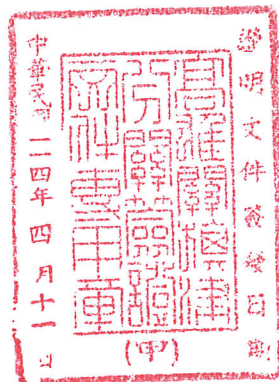 證明文件簽發日期
高雄關機場
分關簽證
文件專用章
中華民國一一四年四月十一日
(甲)